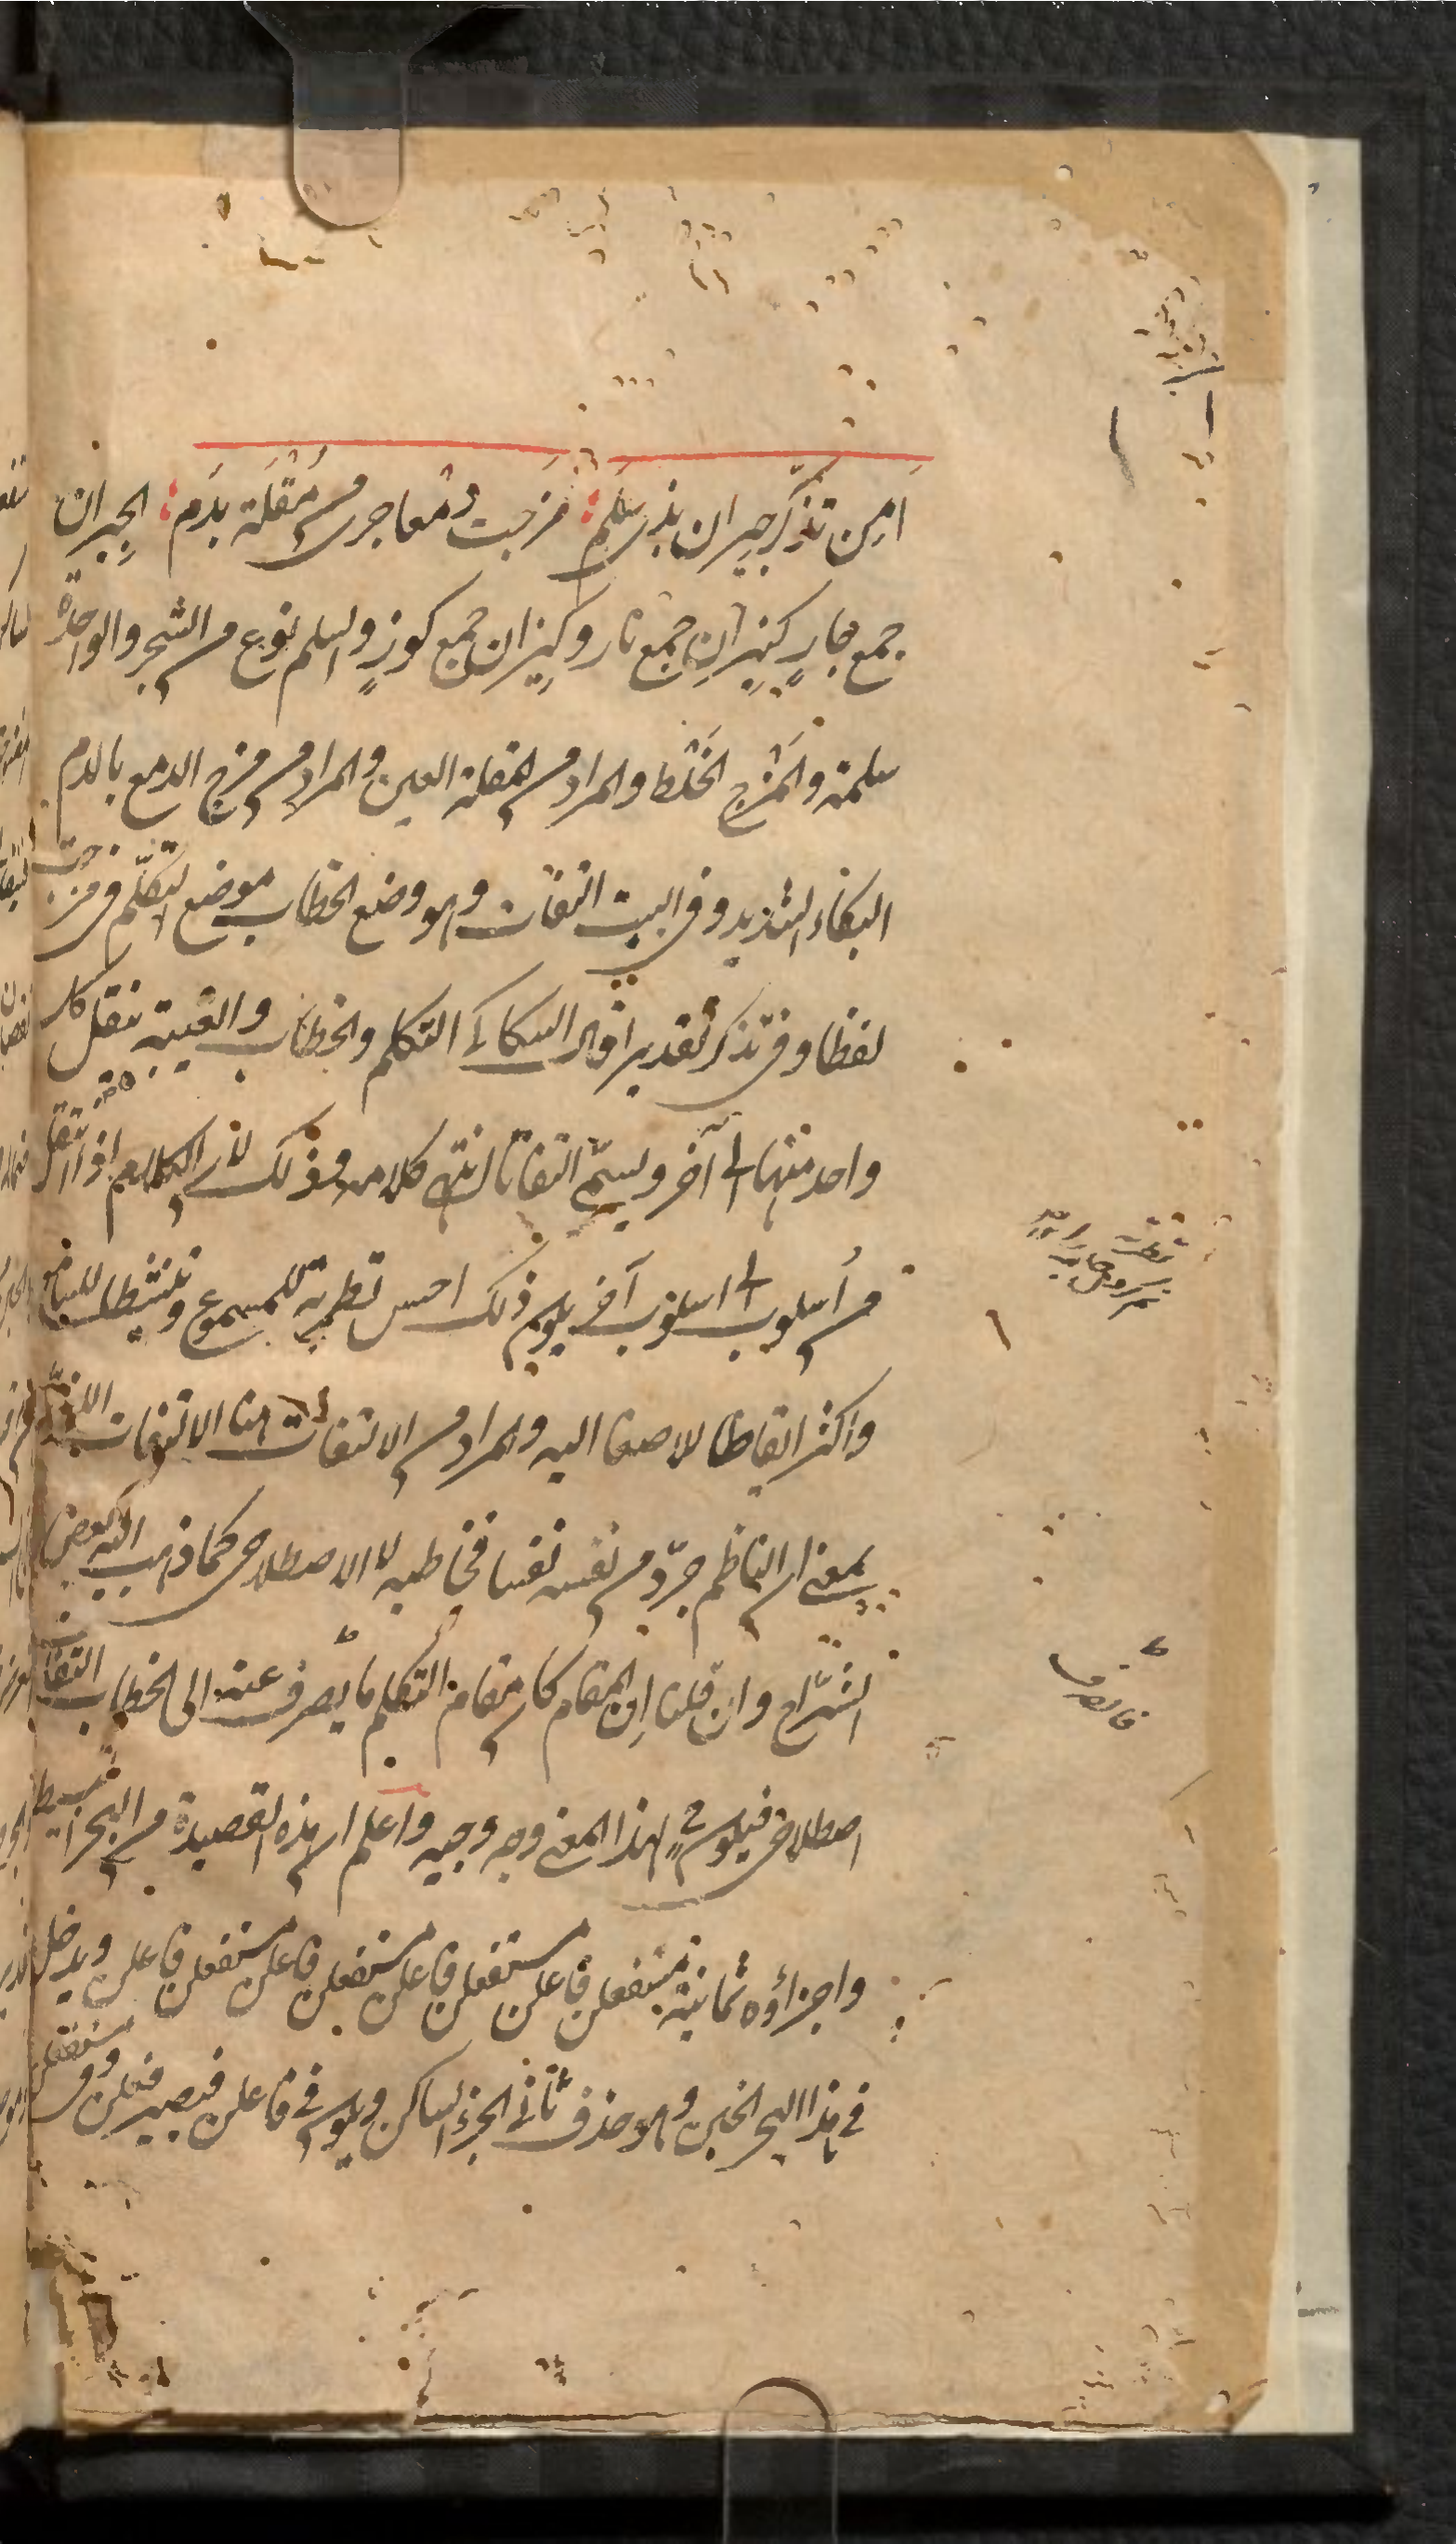 اَمِن تذكّر جيران بذى سلم مَزجت دمعا جرى من مُقْلَة بدَم الجِيران
جمع جارٍ كنِيرانٍ جمع نار وكِيزان جمع كوزٍ والسلم نوع من الشجر والواحدة
سلمة والمَزْج الخَلْط والمراد من المقلة العين والمراد من مزج الدمع بالدم
البكاء الشديد وفى البيت التفات وهو وضع الخطاب موضع التكلّم فى مزجت
لفظا وفى تذكر تقديرا قال السكاكى التكلم والخطاب والغيبة ينقل كل
واحد منها الى آخر ويسمّى التفاتا انتهى كلامه وذلك لان الكلام اذا انتقل
من أسلوب الى اسلوب آخر يكون ذلك احسن تطرية للمسموع وتنشيطا للسامع
واكثر ايقاظا للاصغا اليه والمراد من الالتفات هنا الالتفات اللغوى
بمعنى ان الناظم جرّد من نفسه نفسا فخاطبه لا الاصطلاحى كما ذهب اليه بعض
الشرّاح وان قلنا ان المقام كان مقام التكلم فانصرف عنه الى الخطاب التفاتا
اصطلاحى فيكون لهذا المعنى وجه وجيه واعلم ان هذه القصيدة من البحر البسيط
واجزاؤه ثمانية مستفعلن فاعلن مستفعلن فاعلن مستفعلن فاعلن مستفعلن فاعلن ويدخل
فى هذا البحر الخبن وهو حذف ثانى الجزء الساكن ويكون فى فاعلن فيصير فعلن وفى مستفعلن
فانصرف